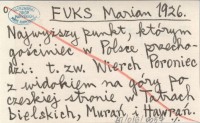 FUKS Marian 1926.
Najwyższy punkt, którym
gościniec w Polsce przecho-
dzi: t. zw. Wierch Poroniec
z widokiem na góry po
czeskiej stronie w Tatrach
Bielskich, Murań i Hawrań.